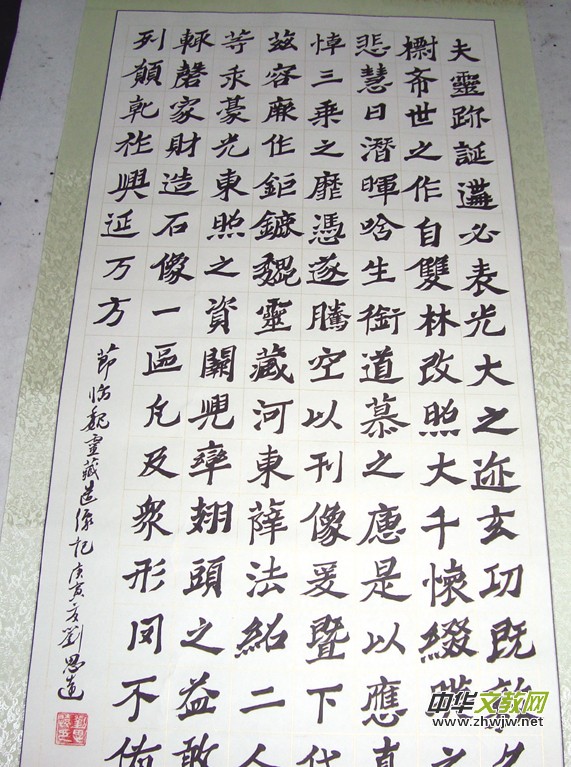 夫靈跡誕遘必表光大之迹玄功既敷
標希世之作自雙林改照大千懷綴暎之
悲慧日潛暉唅生銜道慕之應是以應真
悼三乘之靡憑遂騰空以刊像爰暨下代
茲容厰作鉅鏕魏靈藏河東薛法紹二人
等求豪光東照之資闕兜率翅頭之益敢
輒罄家財造石像一區凡及眾形罔不備
列願乾祚興延万方
節临魏靈藏造像記庚寅夏劉思遠
中华文教网
www.zhwjw.net